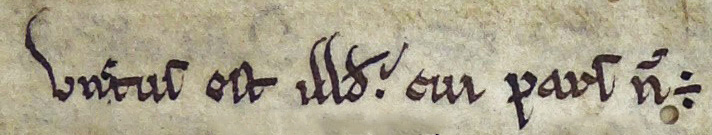 Vnctus est illđ. cui pars n̄ ÷